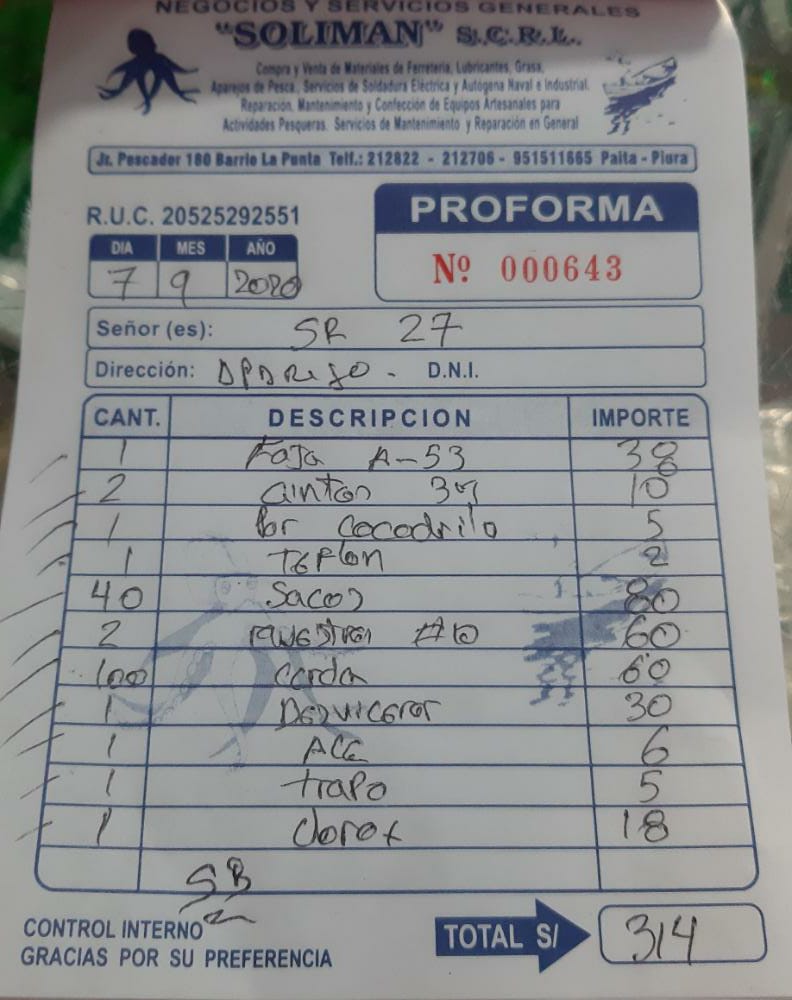 NEGOCIOS Y SERVICIOS GENERALES
"SOLIMAN" S.C.R.L.
Compra y Venta de Materiales de Ferreteria, Lubricantes, Grasa,
Aparejos de Pesca, Servicios de Soldadura Eléctrica y Autógena Naval e Industrial.
Reparación, Mantenimiento y Confección de Equipos Artesanales para
Actividades Pesqueras. Servicios de Mantenimiento y Reparación en General
Jr. Pescador 180 Barrio La Punta Telf.: 212822 - 212706 - 951511665 Paita - Piura
R.U.C. 20525292551
PROFORMA
DIA MES AÑO
7 9 2020
Nº 000643
Señor (es): SR 27
Dirección: APAREJO - D.N.I.
CANT. DESCRIPCION IMPORTE
1 Faja A-53 38
2 cintas 10
1 cocodrilo 5
1 Teflon 2
40 Sacos 80
2 #10 60
100 corda 60
1 30
1 ACE 6
1 trapo 5
1 clorox 18
SB
CONTROL INTERNO
GRACIAS POR SU PREFERENCIA
TOTAL S/ 314